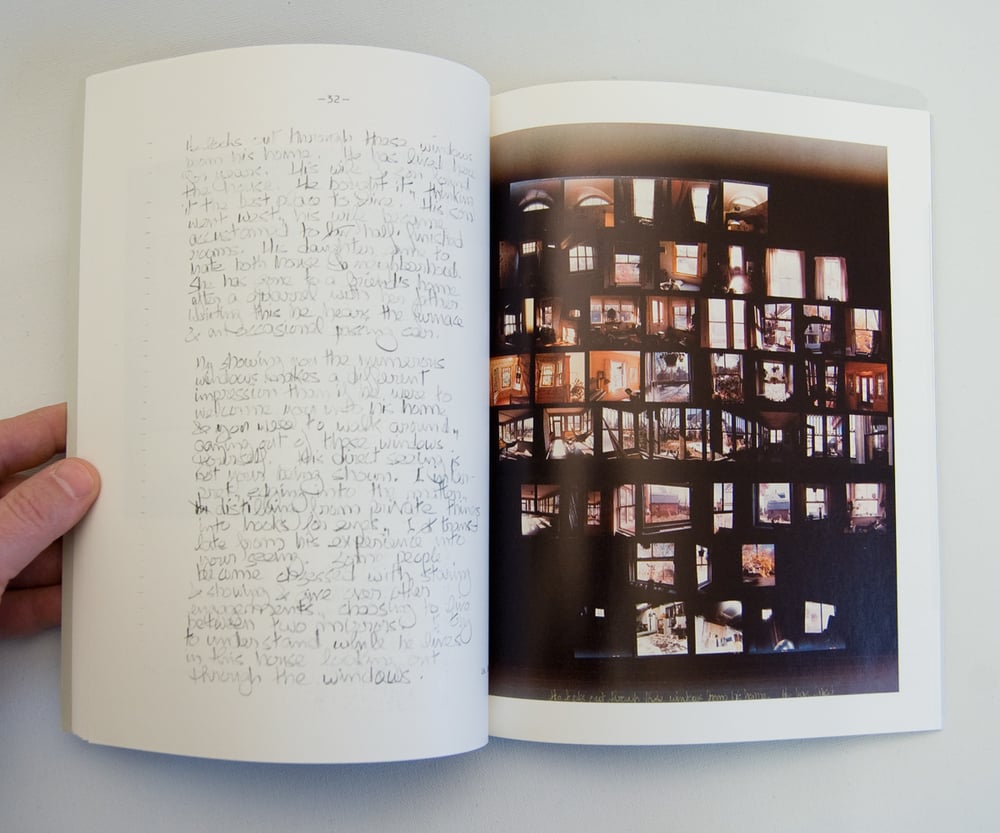 -32-
He looks out through these windows
from his home. He has lived here
for years. His wife & son found
the house. He bought it, thinking
it the best place to save. His son
went west, his wife became
accustomed to far small finished
rooms. His daughter came to
hate both house & neighborhood.
She has gone to a friend's home
after a quarrel with her father.
Waiting thus he hears the furnace
& an occasional passing car.
My showing you the numerous
windows makes a different
impression than if he were to
welcome you into his home,
& you were to walk around,
gazing out of those windows
yourself. His direct seeing is
not your being shown. I
into the matter,
distilling from private things
into books for ends. I trans-
late from his experience into
your seeing. Some people
become obsessed with saving
& showing & give over other
arrangements, choosing to live
between two mirrors. I try
to understand while he lives
in this house looking out
through the windows.
He looks out through these windows from his home. He has lived